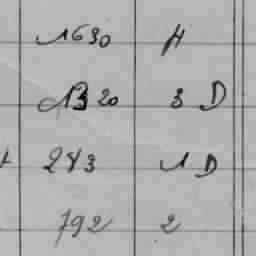 1630 H
1320 3 D
243 1 D
792 2